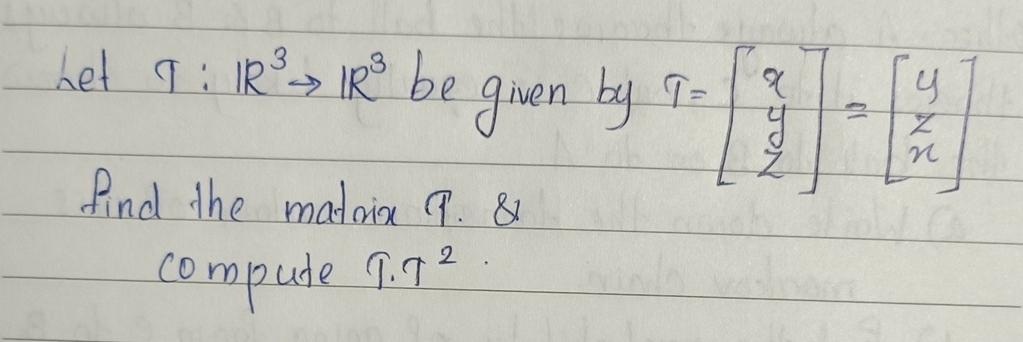 Let T : ℝ³ → ℝ³ be given by T= [x y z] = [y z x]
find the matrix T. &
compute T.T².